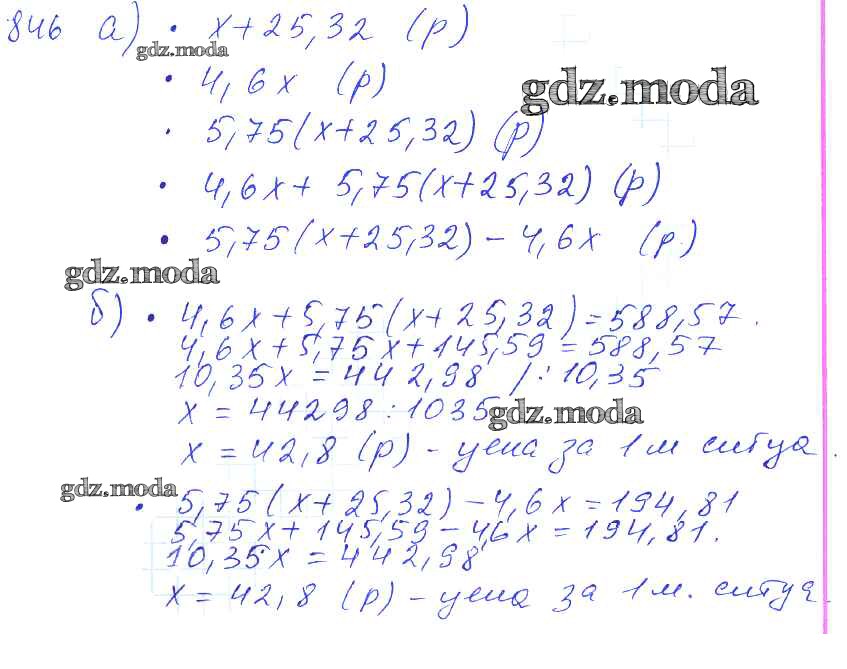 846 а) • x+25,32 (р)
gdz.moda
• 4,6x (р)
gdz.moda
• 5,75(x+25,32) (р)
• 4,6x+ 5,75(x+25,32) (р)
• 5,75(x+25,32) – 4,6x (р)
gdz.moda
б) • 4,6x+5,75(x+ 25,32)=588,57.
4,6x+5,75x+145,59=588,57
10,35x = 442,98 /:10,35
x = 44298:1035
gdz.moda
x = 42,8 (р) – цена за 1м ситца.
gdz.moda
• 5,75(x+25,32) – 4,6x = 194,81
5,75x+145,59–4,6x = 194,81.
10,35x = 442,98
x = 42,8 (р) – цена за 1м. ситца.